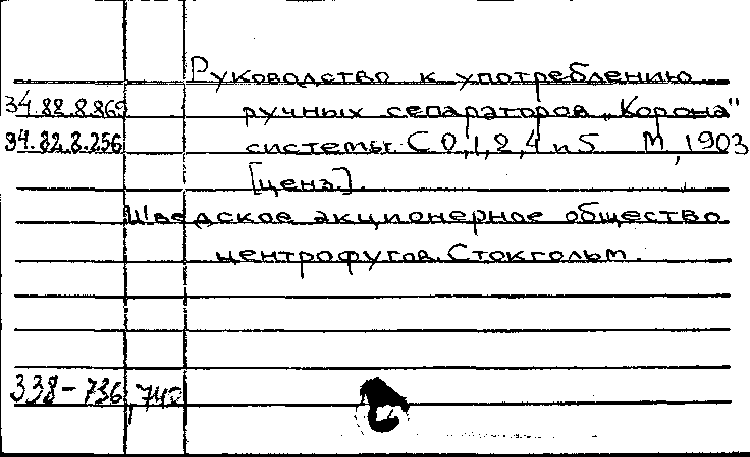 Руководство к употреблению
34.82.8.865 ручных сепараторов „Корона"
34.82.8.256 системы С 0,1,2,4 и 5 М, 1903
[ценз.].
Шведское акционерное общество
центрофугов. Стокгольм.
338-736, 740